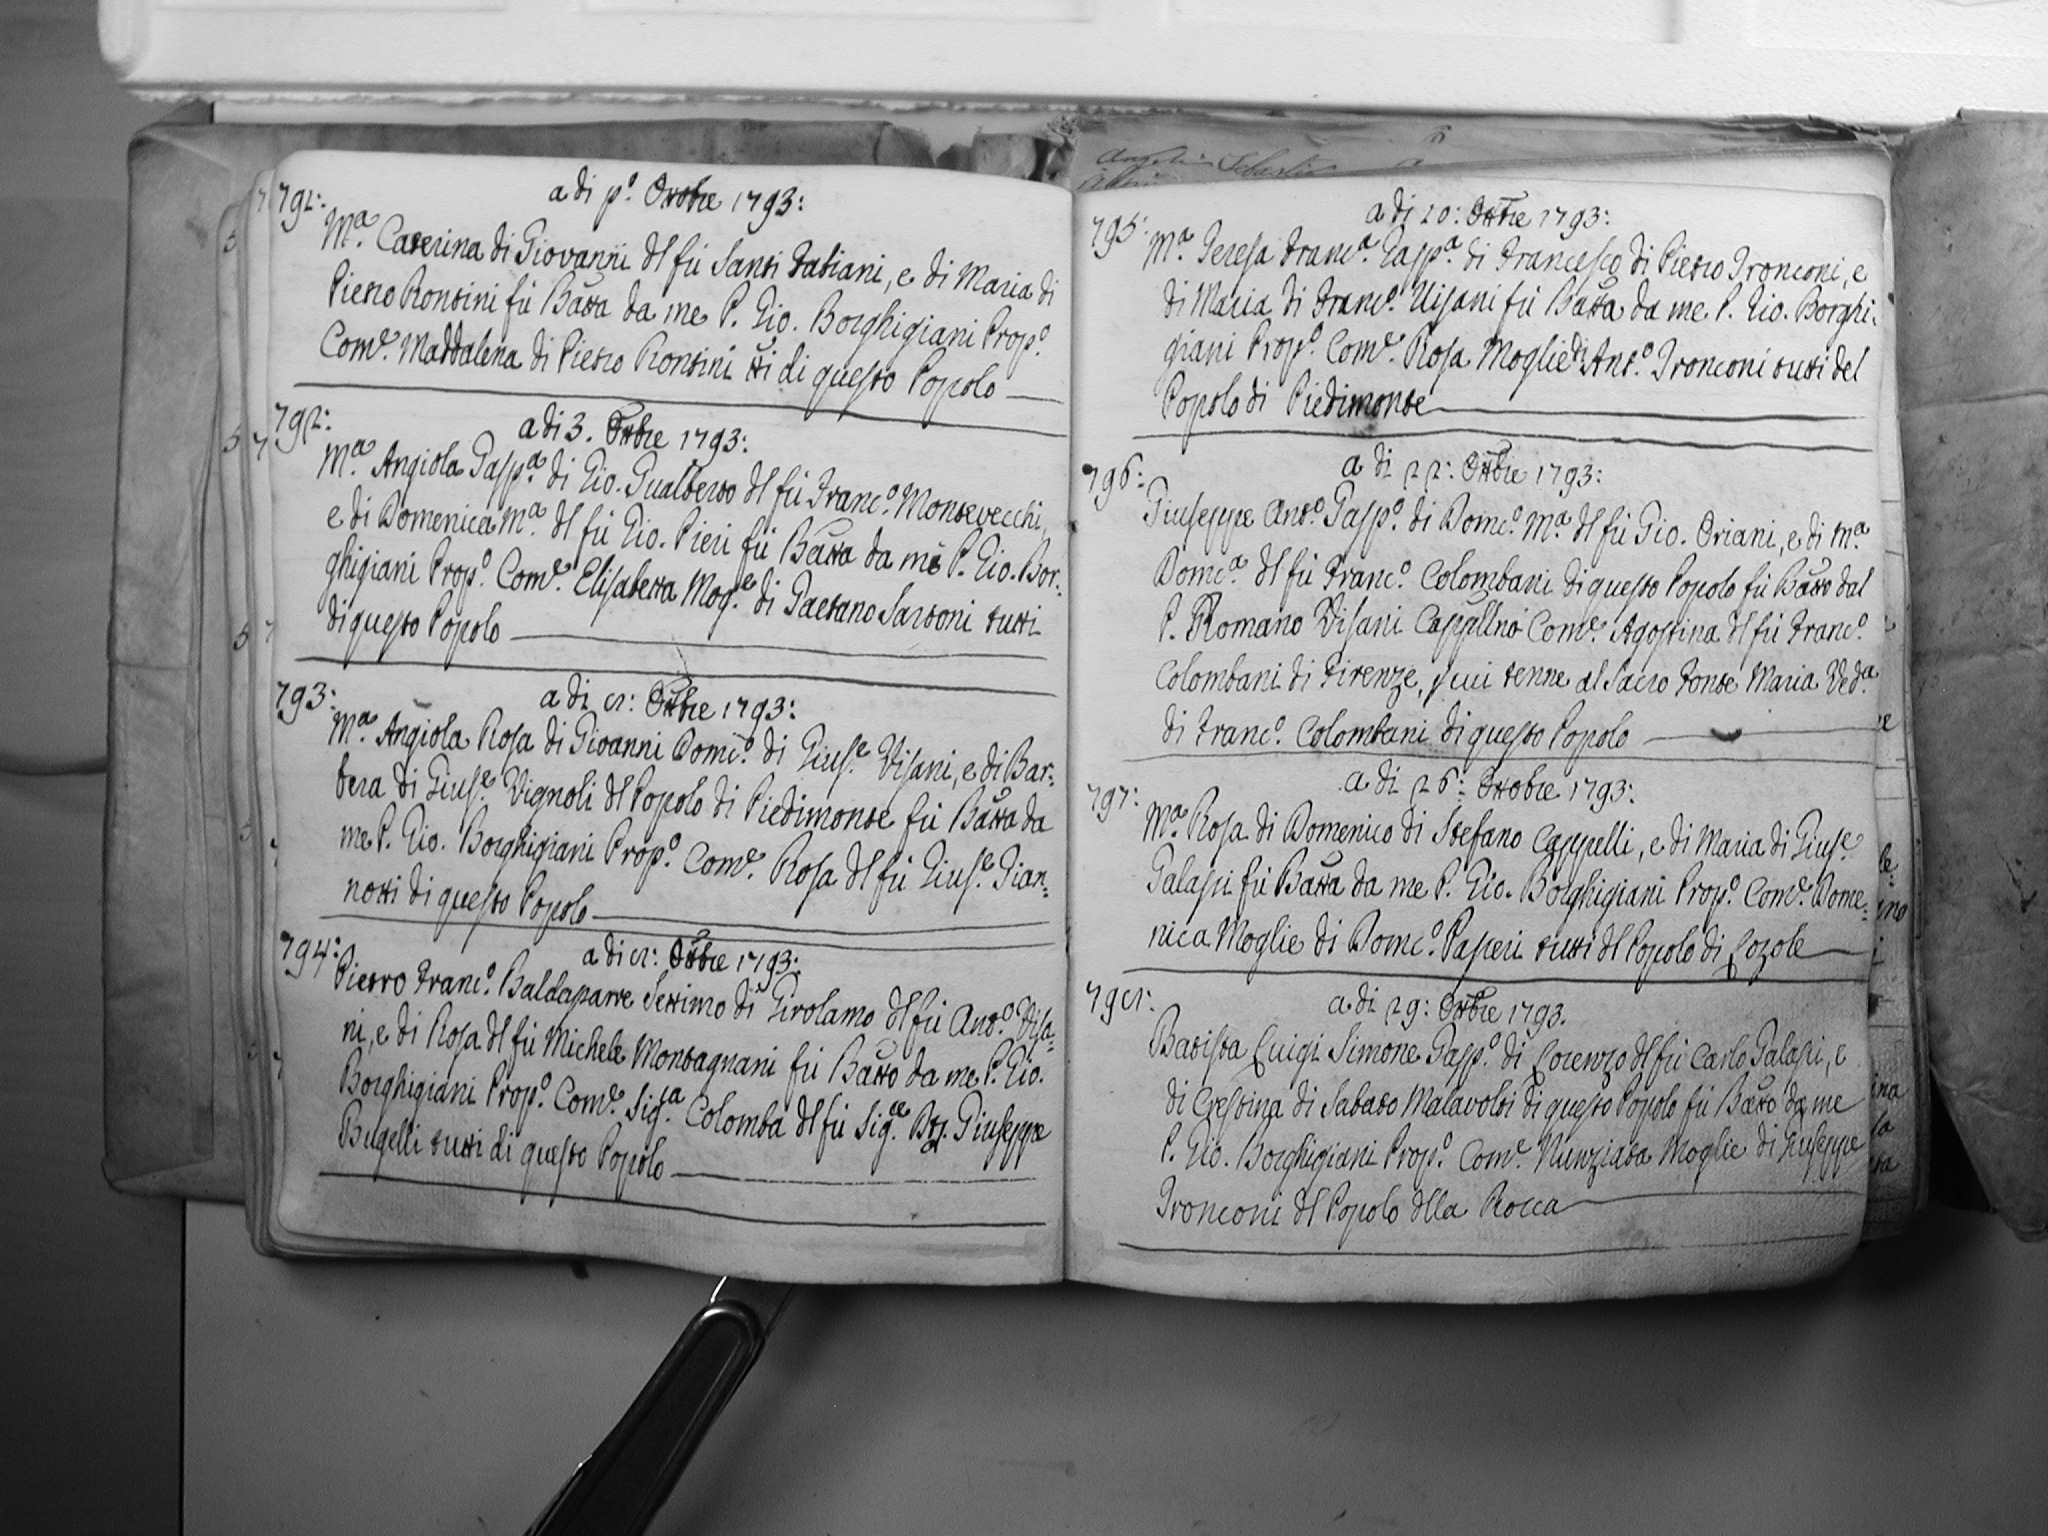 791:
a di p.º Ottobre 1793:
M.ª Caterina di Giovanni dl fù Santi Fabiani, e di Maria di
Pietro Rontini fù Batta da me P. Gio. Borghigiani Prop.º
Com.e Maddalena di Pietro Rontini tti di questo Popolo
792:
a di 3. Ottbre 1793:
M.ª Angiola Gasp.ª di Gio. Gualberto dl fù Franc.º Montevecchi,
e di Domenica M.ª dl fù Gio. Pieri fù Batta da me P. Gio. Bor:
ghigiani Prop.º Com.e Elisabetta Mog.e di Gaetano Sartoni tutti
di questo Popolo
793:
a di 8: Ottbre 1793:
M.ª Angiola Rosa di Gioanni Domc.º di Gius.e Visani, e di Bar:
bera di Gius.e Vignoli dl Popolo di Piedimonte fù Batta da
me P. Gio. Borghigiani Prop.º Com.e Rosa dl fù Gius.e Gian:
notti di questo Popolo
794:
a di 8: Ottbre 1793:
Pietro Franc.º Baldaparre Settimo di Girolamo dl fù Ant.º Visa:
ni, e di Rosa dl fù Michele Montagnani fù Batto da me P. Gio.
Borghigiani Prop.º Com.e Sig.ª Colomba dl fù Sig.re Giuseppe
Bugelli tutti di questo Popolo
Angelo Sebastia
795:
a di 10: Ottbre 1793:
M.ª Teresa Franc.ª Gasp.ª di Francesco di Pietro Tronconi, e
di Maria di Franc.º Visani fù Batta da me P. Gio. Borghi:
giani Prop.º Com.e Rosa Moglie di Ant.º Tronconi tutti del
Popolo di Piedimonte
796:
a di 22: Ottbre 1793:
Giuseppe Ant.º Gasp.º di Domc.º M.ª dl fù Gio. Oriani, e di M.ª
Domc.ª dl fù Franc.º Colombani di questo Popolo fù Batto dal
P. Romano Visani Cappellno Com.e Agostina dl fù Franc.º
Colombani di Firenze, p cui tenne al Sacro Fonte Maria Ved.ª
di Franc.º Colombani di questo Popolo
797:
a di 26: Ottobre 1793:
M.ª Rosa di Domenico di Stefano Cappelli, e di Maria di Gius.e
Galassi fù Batta da me P. Gio. Borghigiani Prop.º Com.e Dome:
nica Moglie di Domc.º Pasperi tutti dl Popolo di Lozole
798:
a di 29: Ottbre 1793.
Batista Luigi Simone Gasp.º di Lorenzo dl fù Carlo Galassi, e
di Crestina di Sabato Malavolti di questo Popolo fù Batto da me
P. Gio. Borghigiani Prop.º Com.e Nunziata Moglie di Giuseppe
Tronconi dl Popolo dlla Rocca